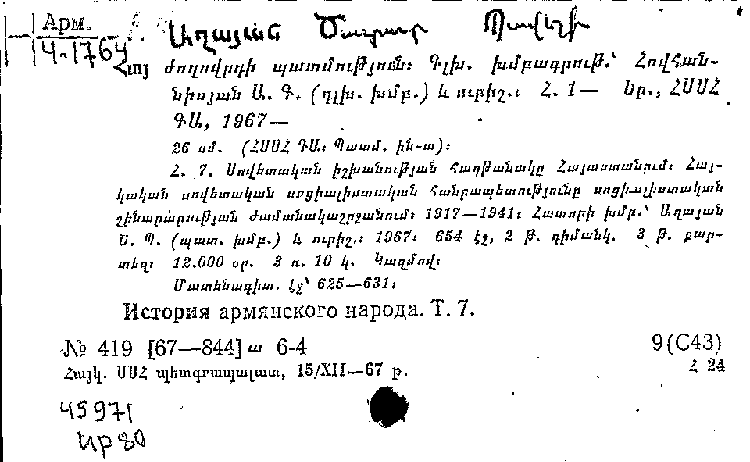 Арм.
Ч-1764
Աղայան Ծատուր Պավելի
Հայ ժողովրդի պատմություն։ Գլխ. խմբագրութ.՝ Հովհան-
նիսյան Ա. Գ. (գլխ. խմբ.) և ուրիշ.։ Հ. 1— Եր., ՀՍՍՀ
ԳԱ, 1967—
26 սմ. (ՀՍՍՀ ԳԱ։ Պատմ. ին-տ)։
Հ. 7. Սովետական իշխանության հաղթանակը Հայաստանում։ Հայ-
կական սովետական սոցիալիստական հանրապետությունը սոցիալիստական
շինարարության ժամանակաշրջանում։ 1917—1941։ Հատորի խմբ.՝ Աղայան
Ծ. Պ. (պատ. խմբ.) և ուրիշ.։ 1967։ 654 էջ, 2 թ. դիմանկ. 3 թ. քար-
տեզ։ 12.000 օր. 3 ռ. 10 կ. Կազմով։
Մատենագիտ. էջ՝ 625—631։
История армянского народа. Т. 7.
№ 419 [67—844] ա 6-4 9(С43)
Հայկ. ՍՍՀ պետգրապալատ, 15/XII—67 թ. Հ 24
45971
Կր 80